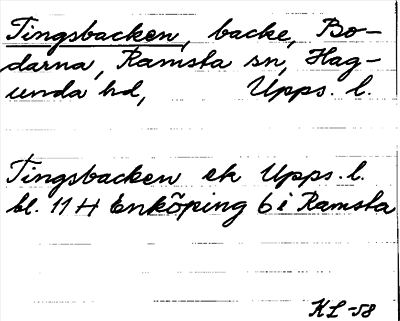 Tingsbacken, backe, Bo-
darna, Ramsta sn, Hag-
unda hd, Upps. l.
Tingsbacken ek Upps. l.
bl. 11 H Enköping 6 i Ramsta
KL -58